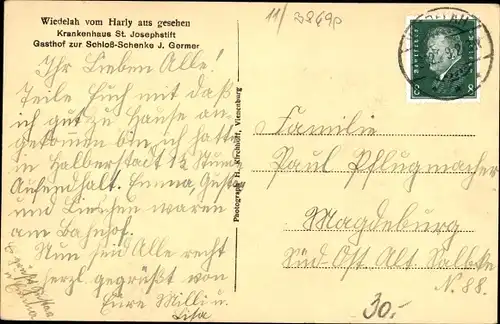 Wiedelah vom Harly aus gesehen
Krankenhaus St. Josephstift
Gasthof zur Schloß-Schenke J. Germer
11/3249p
Ihr Lieben Alle!
Teile Euch mit daß
ich gut zu Hause an
gekommen bin ich hatte
in Halberstadt 12 Mun
Aufendhalt. Emma, Gustav
und Lieschen waren
am Bahnhof.
Nun seid Alle recht
herzl. gegrüßt von
Eure Milli u.
Lisa
Es grüßt Gustav
u Emma
Photograph H. Kirchhoff, Vienenburg
8 8
Familie
Paul Pflugmacher
Magdeburg
Süd-Ost Alt Salbke
N. 88.
30.-